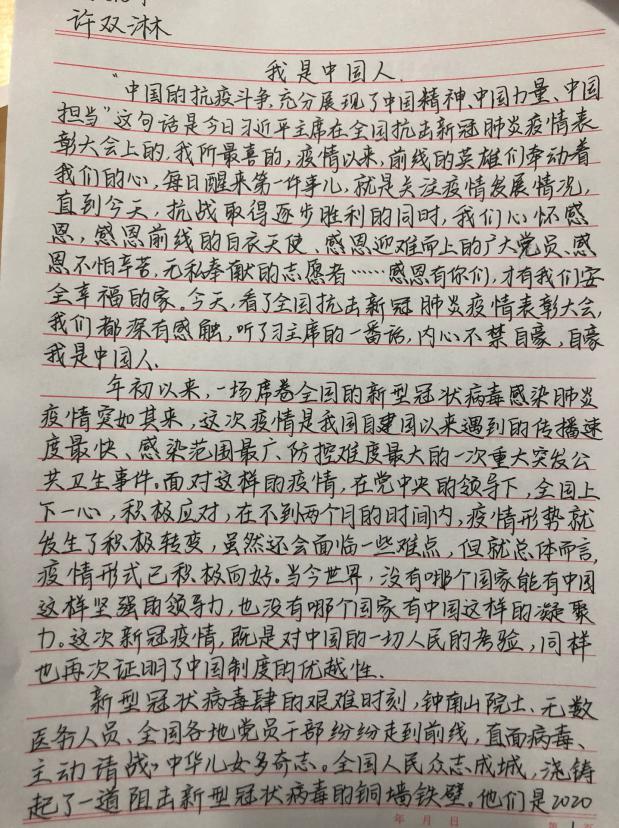 许双淋
我是中国人.
"中国的抗疫斗争,充分展现了中国精神、中国力量、中国
担当"这句话是今日习近平主席在全国抗击新冠肺炎疫情表
彰大会上的,我所最喜的,疫情以来,前线的英雄们牵动着
我们的心,每日醒来第一件事儿,就是关注疫情发展情况,
直到今天,抗战取得逐步胜利的同时,我们心怀感
恩,感恩前线的白衣天使、感恩迎难而上的广大党员、感
恩不怕辛苦,无私奉献的志愿者……感恩有你们,才有我们安
全幸福的家。今天,看了全国抗击新冠肺炎疫情表彰大会,
我们都深有感触,听了习主席的一番话,内心不禁自豪,自豪
我是中国人.
年初以来,一场席卷全国的新型冠状病毒感染肺炎
疫情突如其来,这次疫情是我国自建国以来遇到的传播速
度最快、感染范围最广、防控难度最大的一次重大突发公
共卫生事件。面对这样的疫情,在党中央的领导下,全国上
下一心,积极应对,在不到两个月的时间内,疫情形势就
发生了积极转变,虽然还会面临一些难点,但就总体而言,
疫情形式已积极向好。当今世界,没有哪个国家能有中国
这样坚强的领导力,也没有哪个国家有中国这样的凝聚
力。这次新冠疫情,既是对中国的一切人民的考验,同样
也再次证明了中国制度的优越性.
新型冠状病毒肆的艰难时刻,钟南山院士、无数
医务人员、全国各地党员干部纷纷走到前线,直面病毒、
主动请战,中华儿女多奇志。全国人民众志成城,浇铸
起了一道阻击新型冠状病毒的铜墙铁壁。他们是2020
年 月 日